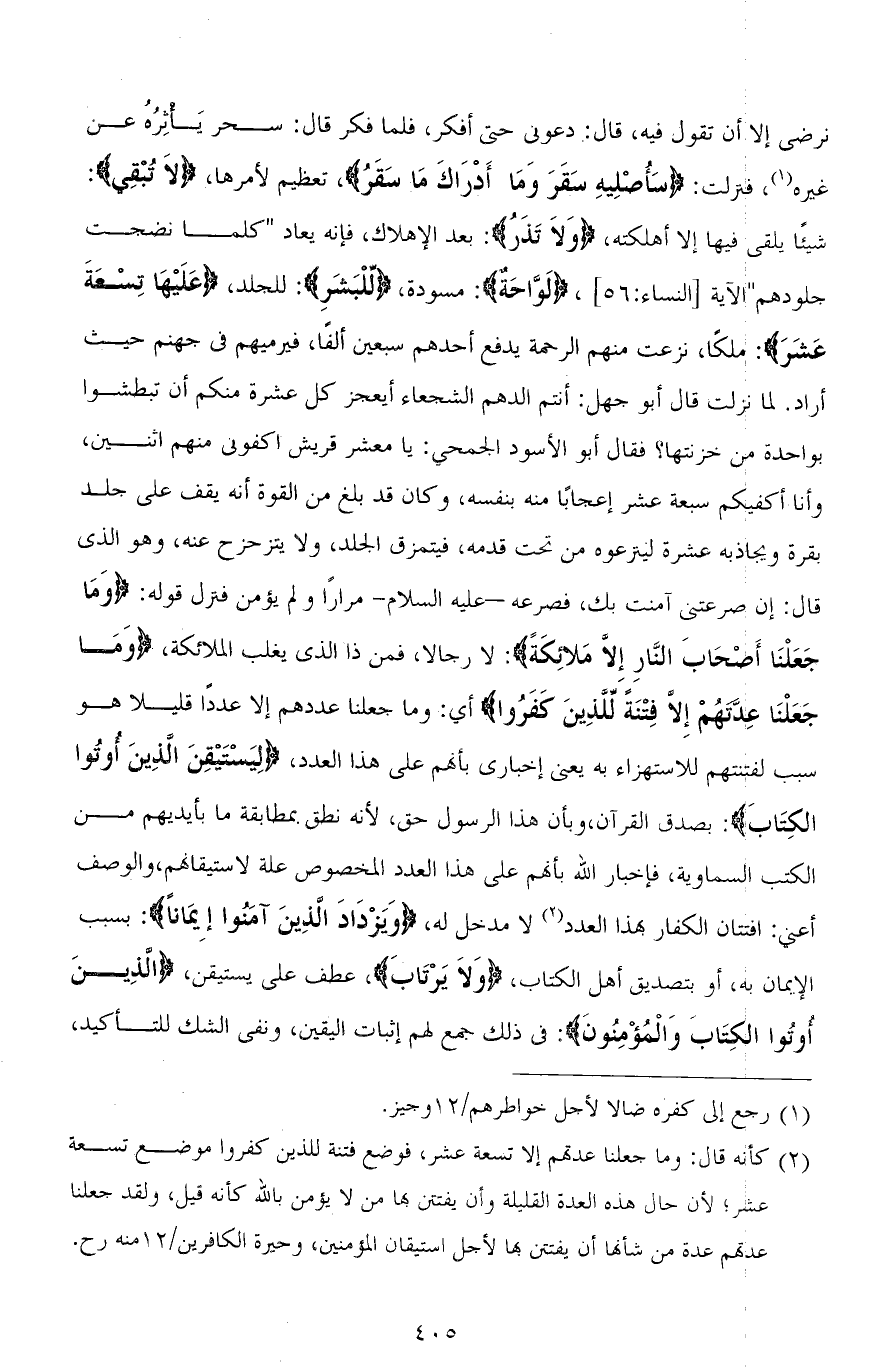 نرضى إلا أن تقول فيه، قال: دعونى حتى أفكر، فلما فكر قال: سحر يَأْثِرُهُ عن
غيره(١)، فنزلت: ﴿سَأُصْلِيهِ سَقَرَ وَمَا أَدْرَاكَ مَا سَقَرُ﴾، تعظيم لأمرها، ﴿لاَ تُبْقِي﴾:
شيئًا يلقى فيها إلا أهلكته، ﴿وَلاَ تَذَرُ﴾: بعد الإهلاك، فإنه يعاد "كلما نضجت
جلودهم"الآية [النساء:٥٦] ، ﴿لَوَّاحَةٌ﴾: مسودة، ﴿لِّلْبَشَرِ﴾: للجلد، ﴿عَلَيْهَا تِسْعَةَ
عَشَرَ﴾: ملكًا، نزعت منهم الرحمة يدفع أحدهم سبعين ألفًا، فيرميهم فى جهنم حيث
أراد. لما نزلت قال أبو جهل: أنتم الدهم الشجعاء أيعجز كل عشرة منكم أن تبطشوا
بواحدة من خزنتها؟ فقال أبو الأسود الجمحي: يا معشر قريش اكفونى منهم اثنين،
وأنا أكفيكم سبعة عشر إعجابًا منه بنفسه، وكان قد بلغ من القوة أنه يقف على جلد
بقرة ويجاذبه عشرة لينزعوه من تحت قدمه، فيتمزق الجلد، ولا يتزحزح عنه، وهو الذى
قال: إن صرعتنى آمنت بك، فصرعه –عليه السلام– مرارًا و لم يؤمن فنزل قوله: ﴿وَمَا
جَعَلْنَا أَصْحَابَ النَّارِ إِلاَّ مَلائِكَةً﴾: لا رجالا، فمن ذا الذى يغلب الملائكة، ﴿وَمَا
جَعَلْنَا عِدَّتَهُمْ إِلاَّ فِتْنَةً لِّلَّذِينَ كَفَرُوا﴾ أي: وما جعلنا عددهم إلا عددًا قليلا هو
سبب لفتنتهم للاستهزاء به يعنى إخبارى بأنهم على هذا العدد، ﴿لِيَسْتَيْقِنَ الَّذِينَ أُوتُوا
الكِتَابَ﴾: بصدق القرآن،وبأن هذا الرسول حق، لأنه نطق بمطابقة ما بأيديهم من
الكتب السماوية، فإخبار الله بأنهم على هذا العدد المخصوص علة لاستيقانهم،والوصف
أعني: افتتان الكفار بهذا العدد(٢) لا مدخل له، ﴿وَيَزْدَادَ الَّذِينَ آمَنُوا إِيمَاناً﴾: بسبب
الإيمان به، أو بتصديق أهل الكتاب، ﴿وَلاَ يَرْتَابَ﴾، عطف على يستيقن، ﴿الَّذِينَ
أُوتُوا الكِتَابَ وَالْمُؤْمِنُونَ﴾: فى ذلك جمع لهم إثبات اليقين، ونفى الشك للتأكيد،
(١) رجع إلى كفره ضالا لأجل خواطرهم/١٢وجيز.
(٢) كأنه قال: وما جعلنا عدتهم إلا تسعة عشر، فوضع فتنة للذين كفروا موضع تسعة
عشر؛ لأن حال هذه العدة القليلة وأن يفتتن بها من لا يؤمن بالله كأنه قيل، ولقد جعلنا
عدتهم عدة من شأنها أن يفتتن بها لأجل استيقان المؤمنين، وحيرة الكافرين/١٢منه رح.
٤٠٥